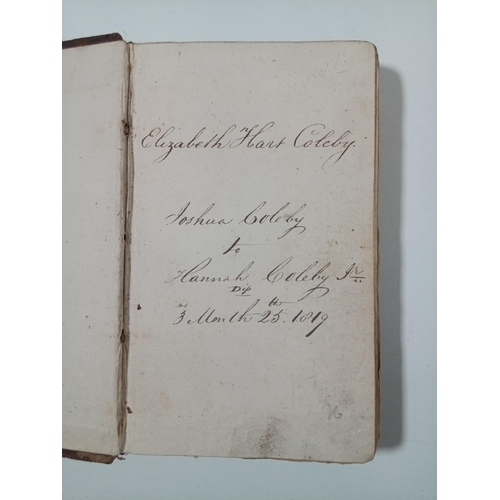 Elizabeth Hart Coleby.
Joshua Coleby
to
Hannah Coleby Jr
3rd Month 25th. 1819